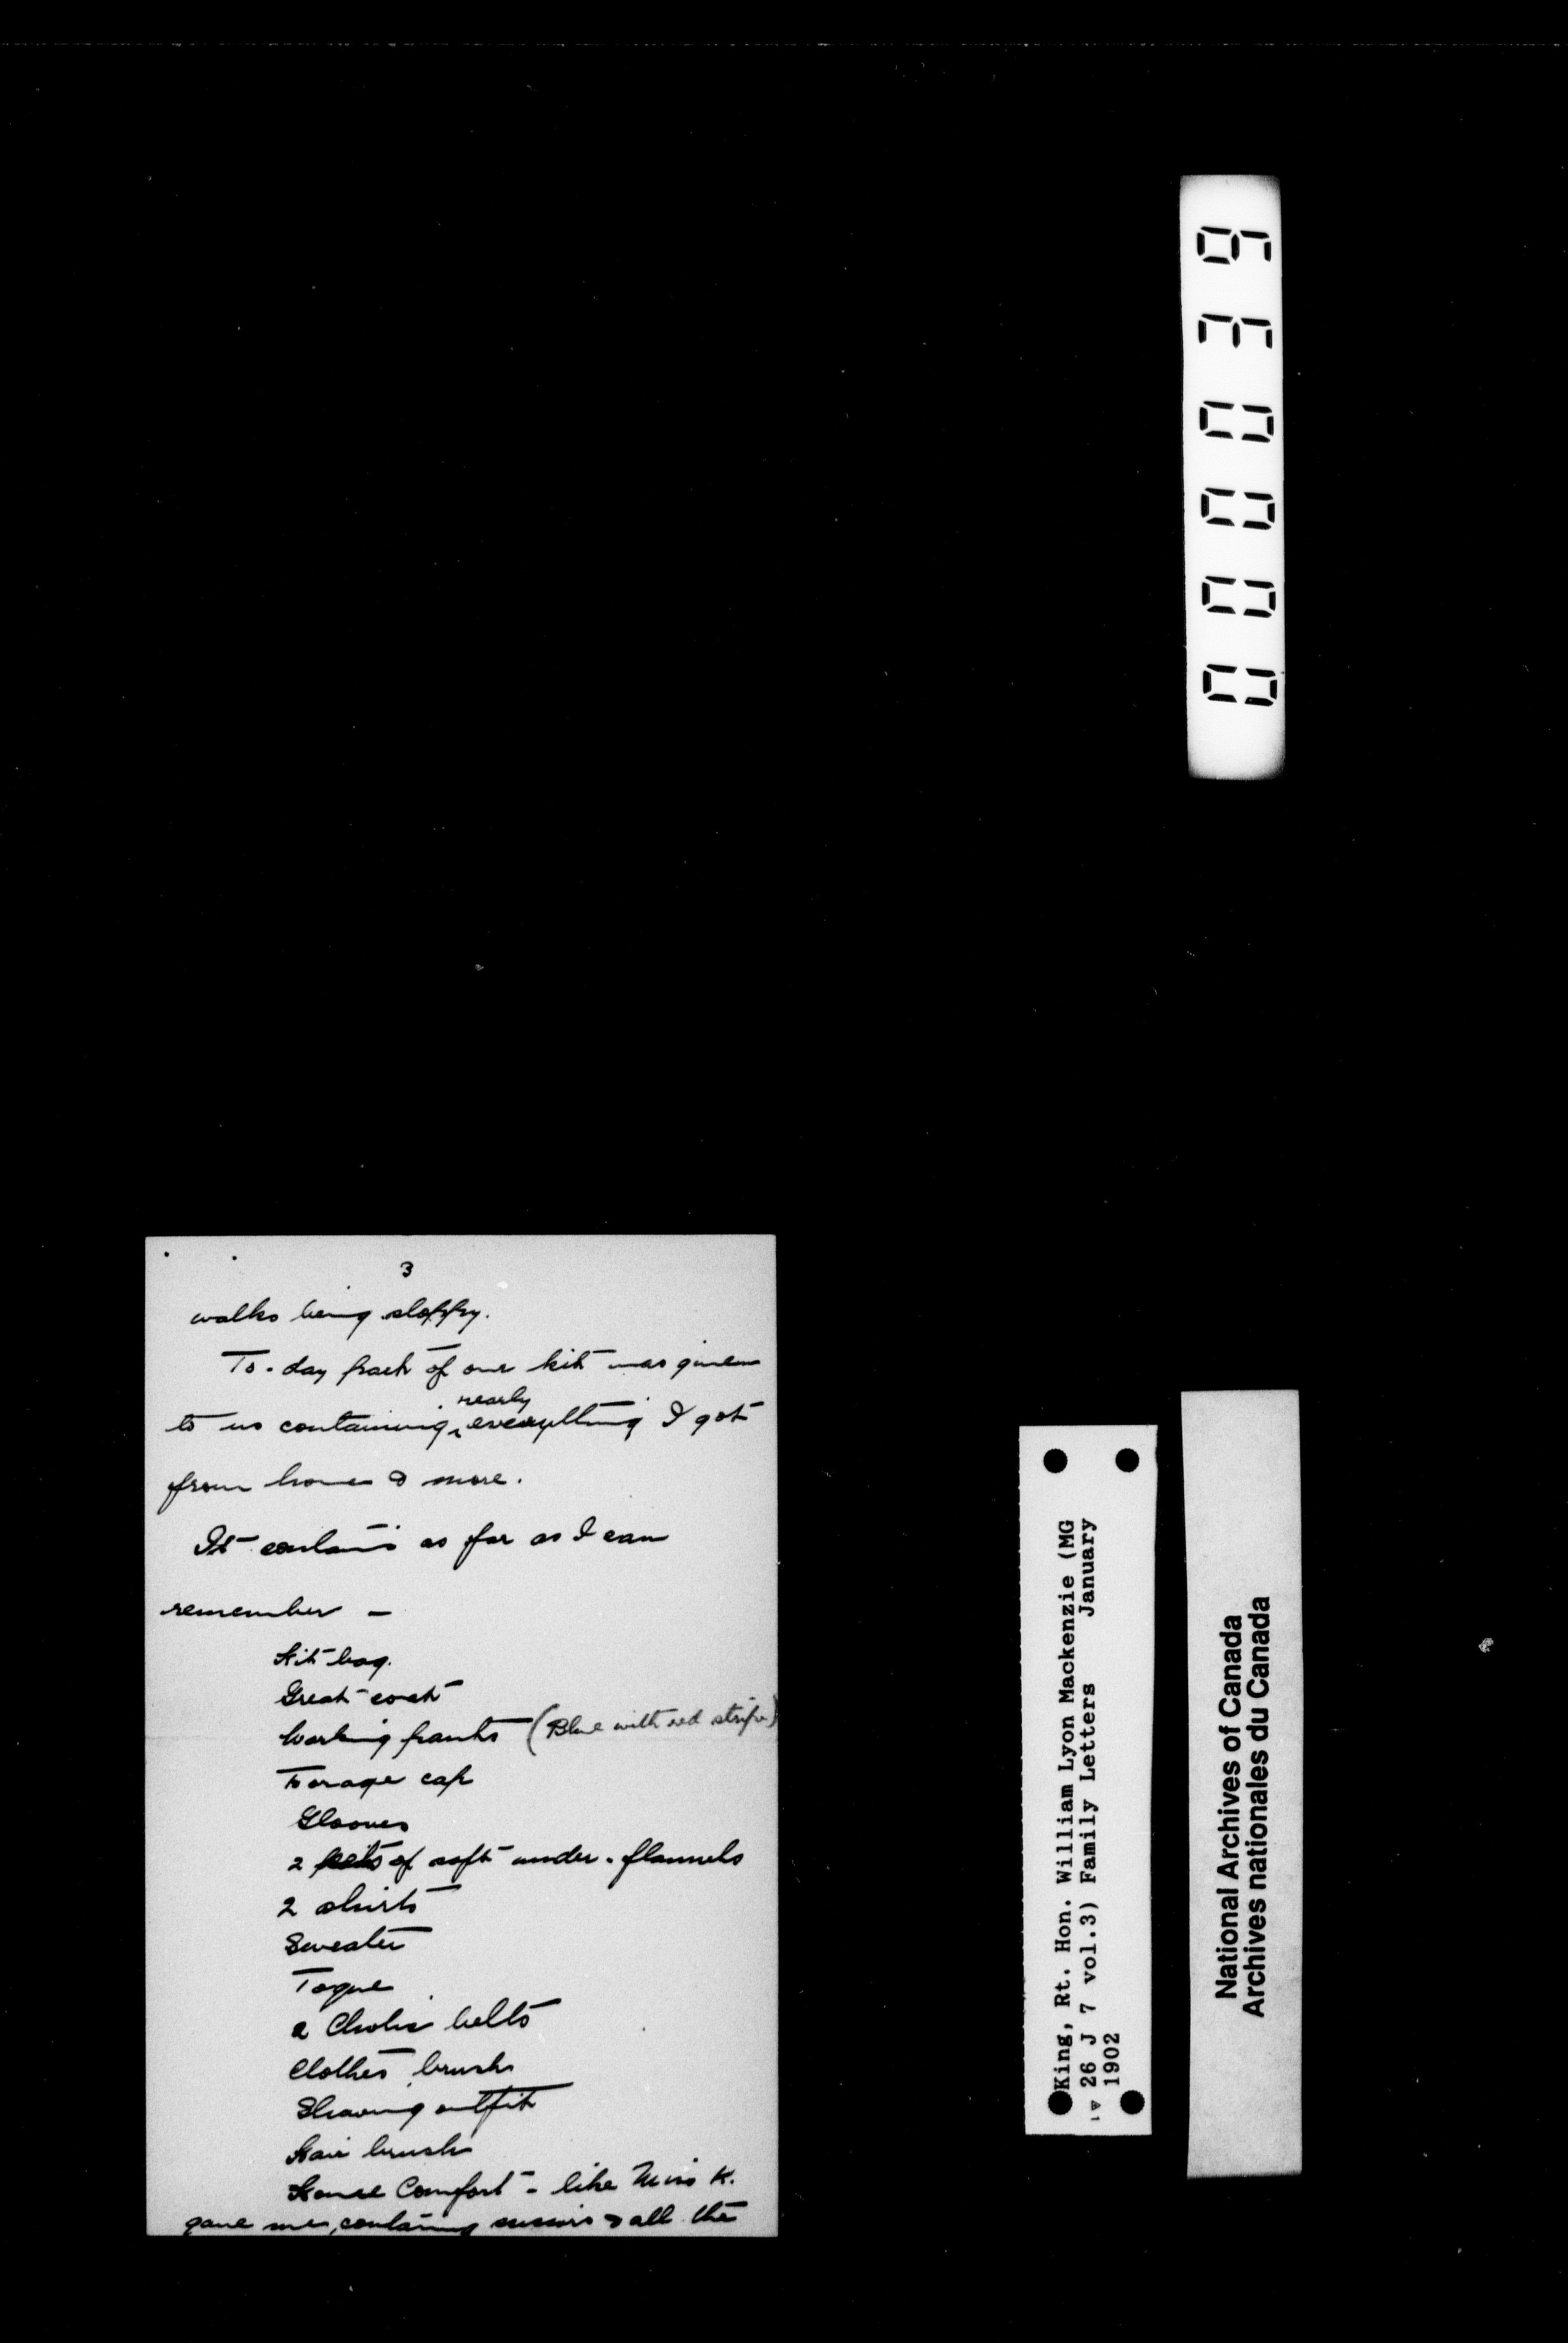 3
walks being sloppy.
To-day part of our kit was given
to us containing nearly everything I got
from home & more.
It contains as far as I can
remember —
Kit bag.
Great coat
Working pants (Blue with red stripe)
Forage cap
Gloves
2 sets of soft under-flannels
2 shirts
Sweater
Toque
2 Cholic belts
Clothes brush
Shaving outfit
Hair brush
House Comfort - like Miss K.
gave me, containing scissors & all the
King, Rt. Hon. William Lyon Mackenzie (MG
26 J 7 vol.3) Family Letters January
1902
National Archives of Canada
Archives nationales du Canada